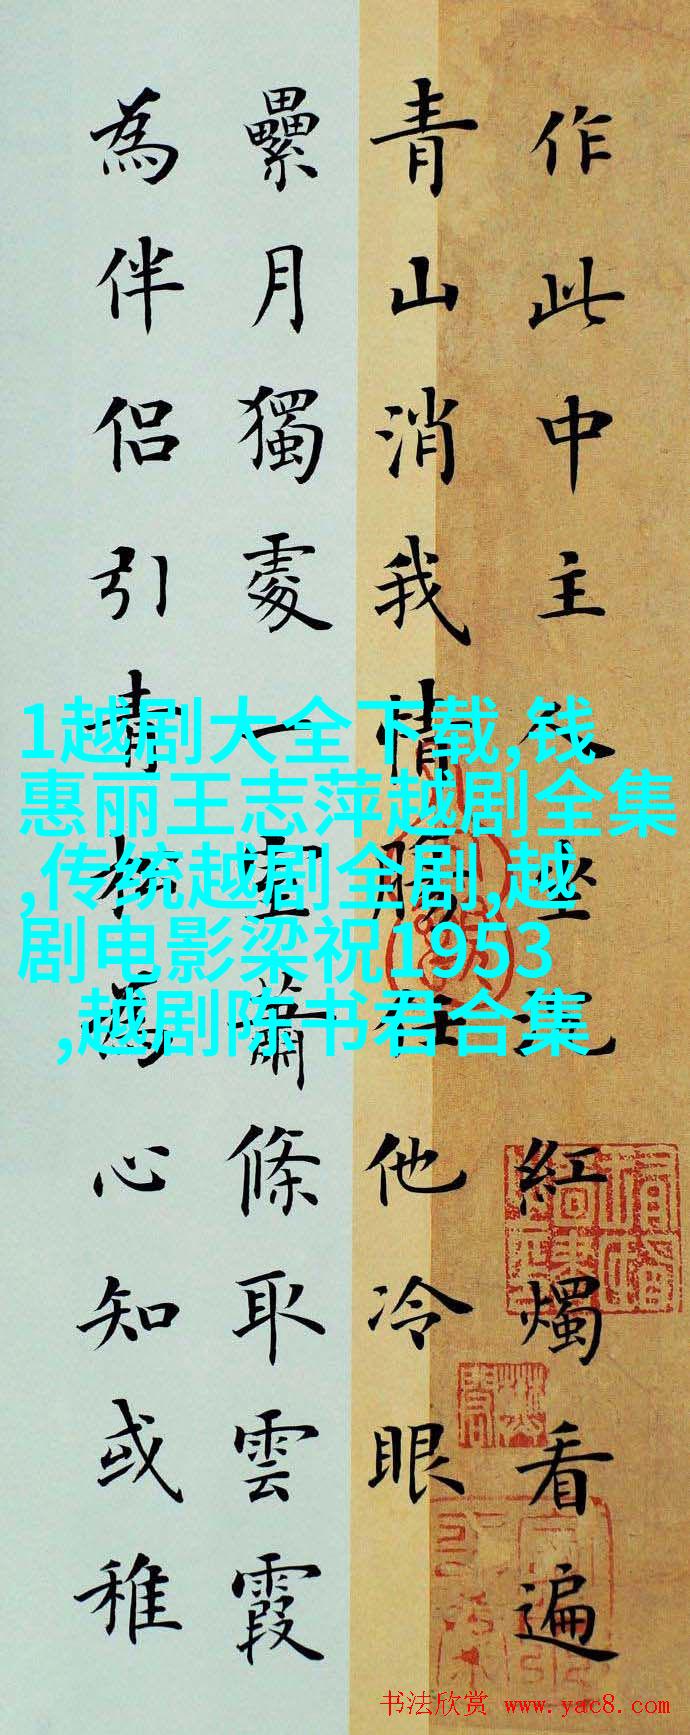 作此中主人坐見紅燭看遍
青山消我情腸任他冷眼
纍月獨處一室蕭條取雲霞
為伴侶引青松為心知或稚
1越剧大全下载,钱
惠丽王志萍越剧全集
,传统越剧全剧,越
剧电影梁祝1953
,越剧陈书君合集
书法欣赏 www.yac8.com